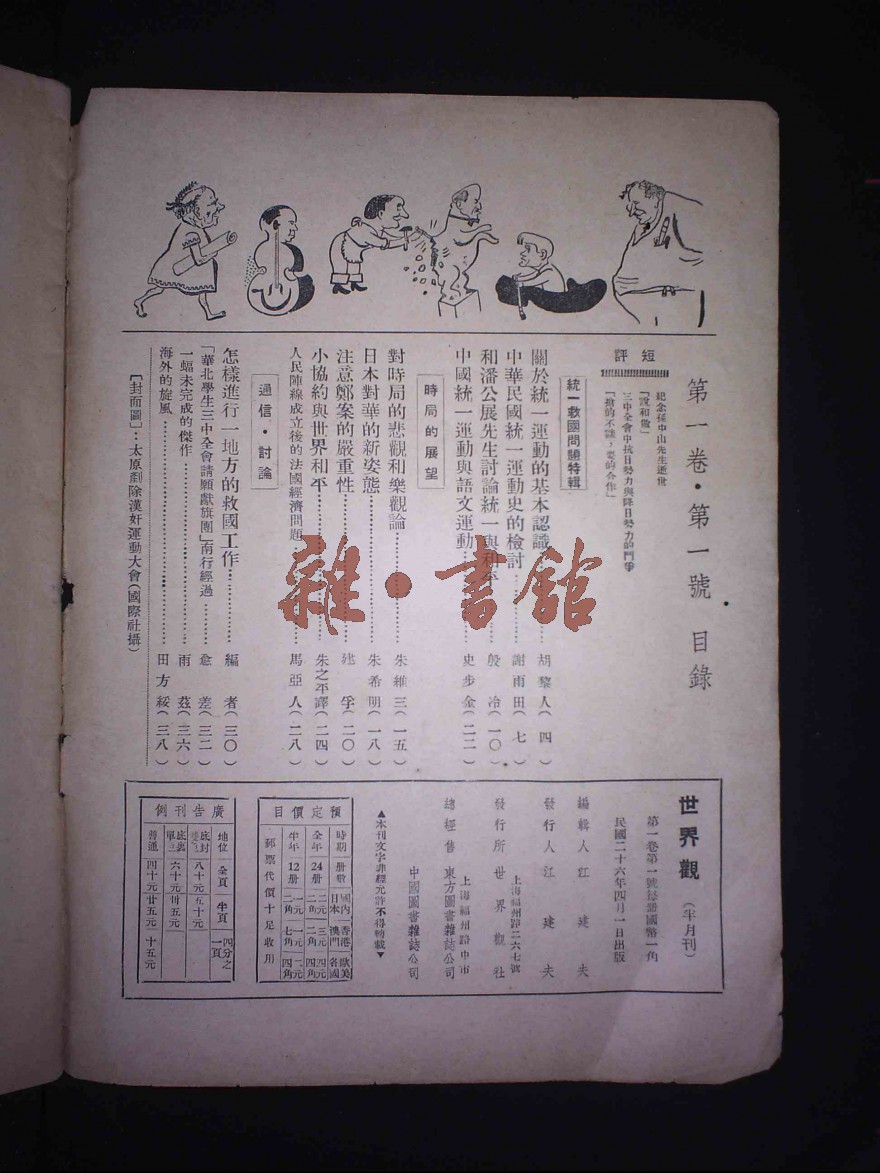 第一卷·第一號 目錄
短評
紀念孫中山先生逝世
三中全會中抗日勢力與降日勢力的鬥爭
統一救國問題特輯
關於統一運動的基本認識 胡黎人(四)
中華民國統一運動史的檢討 謝雨田(七)
和潘公展先生討論統一與和平 殷冷(一〇)
中國統一運動與語文運動 史步金(二二)
時局的展望
對時局的悲觀和樂觀論 朱維三(一五)
日本對華的新姿態 朱希明(一八)
注意鄭案的嚴重性 建孚(二〇)
小協約與世界和平 朱之平譯(二四)
人民陣線成立後的法國經濟問題 馬亞人(二八)
通信·討論
怎樣進行一地方的救國工作 編者(三〇)
「華北學生三中全會請願獻旗團」南行經過 愈差(三二)
一幅未完成的傑作 雨茲(三六)
海外的旋風 田方綏(三八)
〔封面圖〕:太原剷除漢奸運動大會(國際社攝)
世界觀(半月刊)
第一卷第一號每冊國幣一角
民國二十六年四月一日出版
編輯人 江建夫
發行人 江建夫
上海福州路二六七號
發行所 世界觀社
上海福州路中市
總經售 東方圖書雜誌公司
中國圖書雜誌公司
▲本刊文字非經允許不得轉載▼
預定價目
時期 冊數 國內日本 香港澳門 歐美各國
全年 24冊 二元二角 三元二角 四元四角
半年 12冊 一元二角 一元七角 二元四角
郵票代價十足收用
廣告刊例
地位 全頁 半頁 四分之一頁
底封 八十元 五十元
底裏 六十元 卅五元
普通 四十元 廿五元 十五元
雜·書館